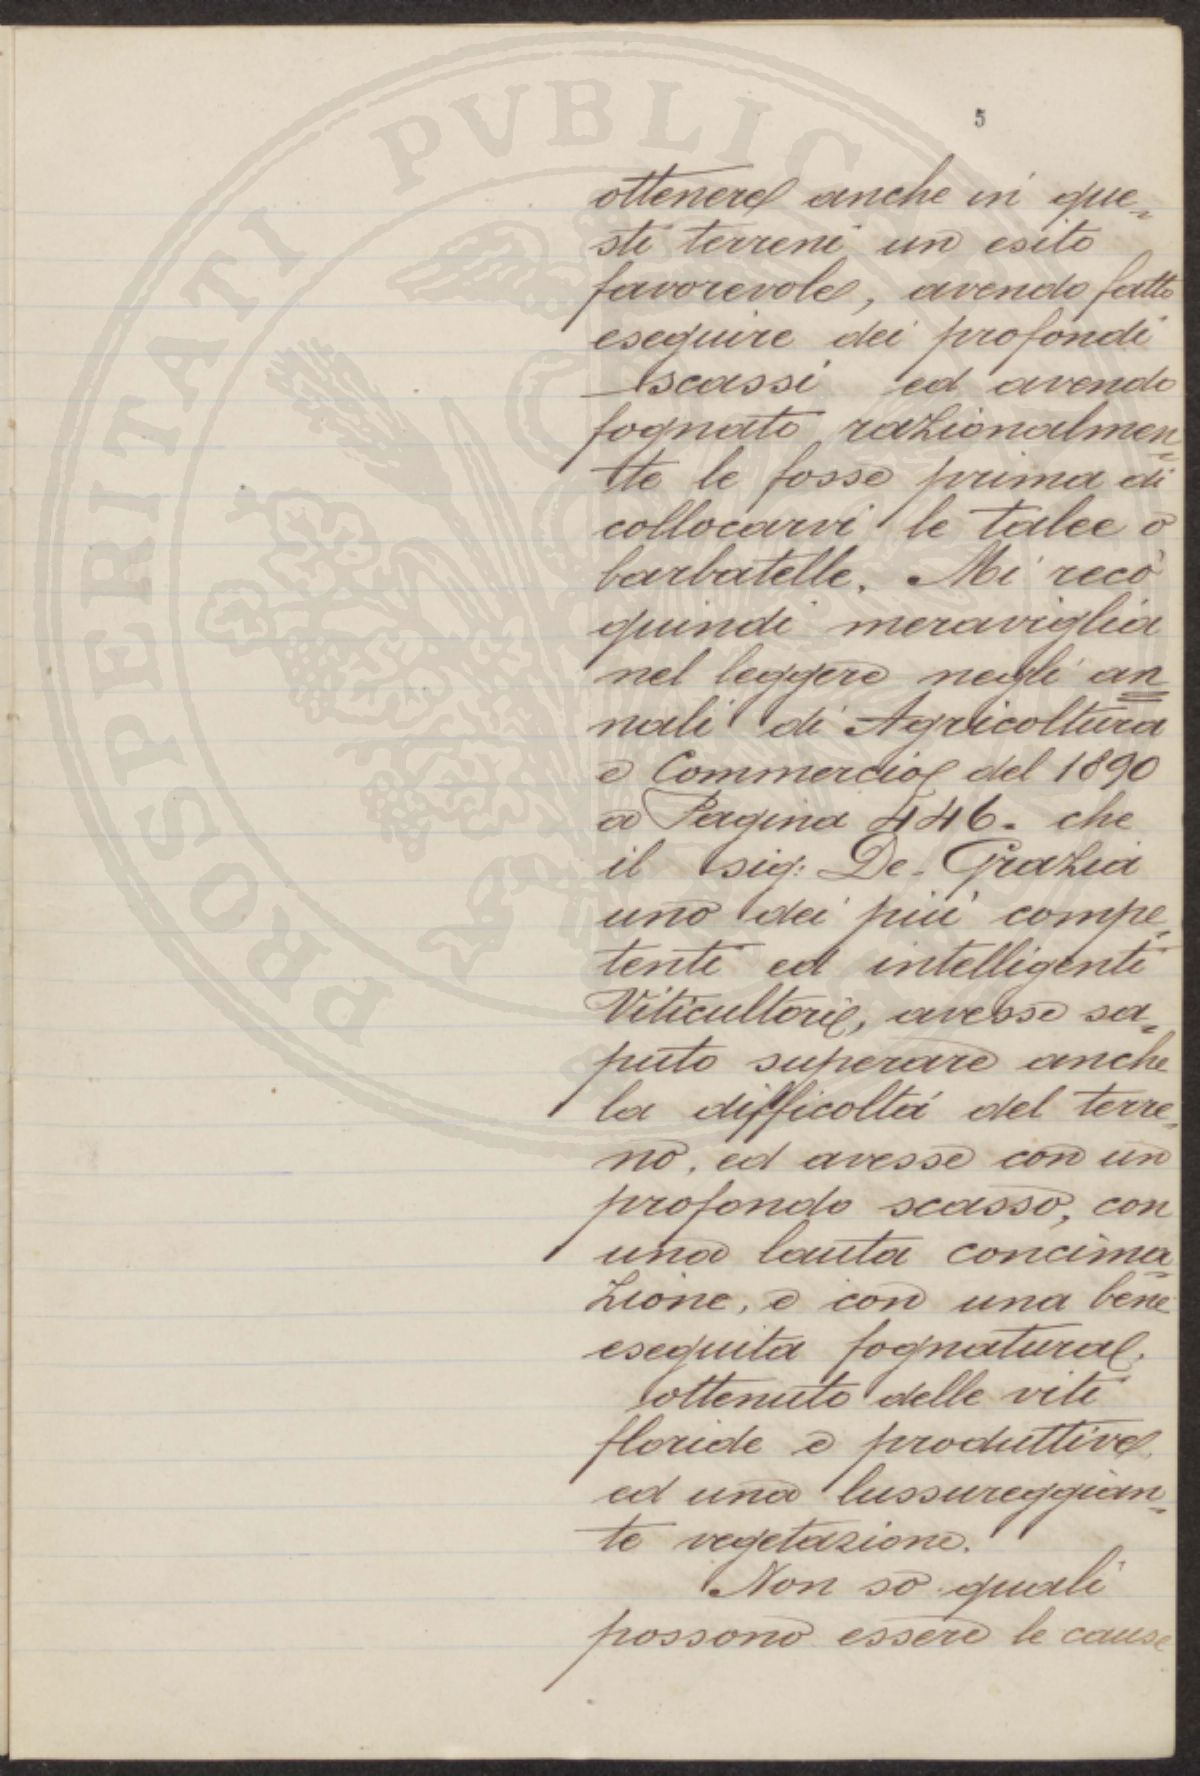 PROSPERITATI PVBLIC
5
ottenere anche in que=
sti terreni un esito
favorevole, avendo fatto
eseguire dei profondi
scassi ed avendo
fognato razionalmen=
te le fosse prima di
collocarvi le talee o
barbatelle. Mi recò
quindi meraviglia
nel leggere negli an=
nali di Agricoltura
e Commercio del 1890
a Pagina 446. che
il sig: De-Grazia
uno dei più compe=
tenti ed intelligenti
Viticultori, avesse sa=
puto superare anche
la difficoltà del terre=
no, ed avesse con un
profondo scasso, con
una lauta concima=
zione, e con una bene
eseguita fognatura,
ottenuto delle viti
floride e produttive
ed una lussureggian=
te vegetazione.
Non so quali
possono essere le cause